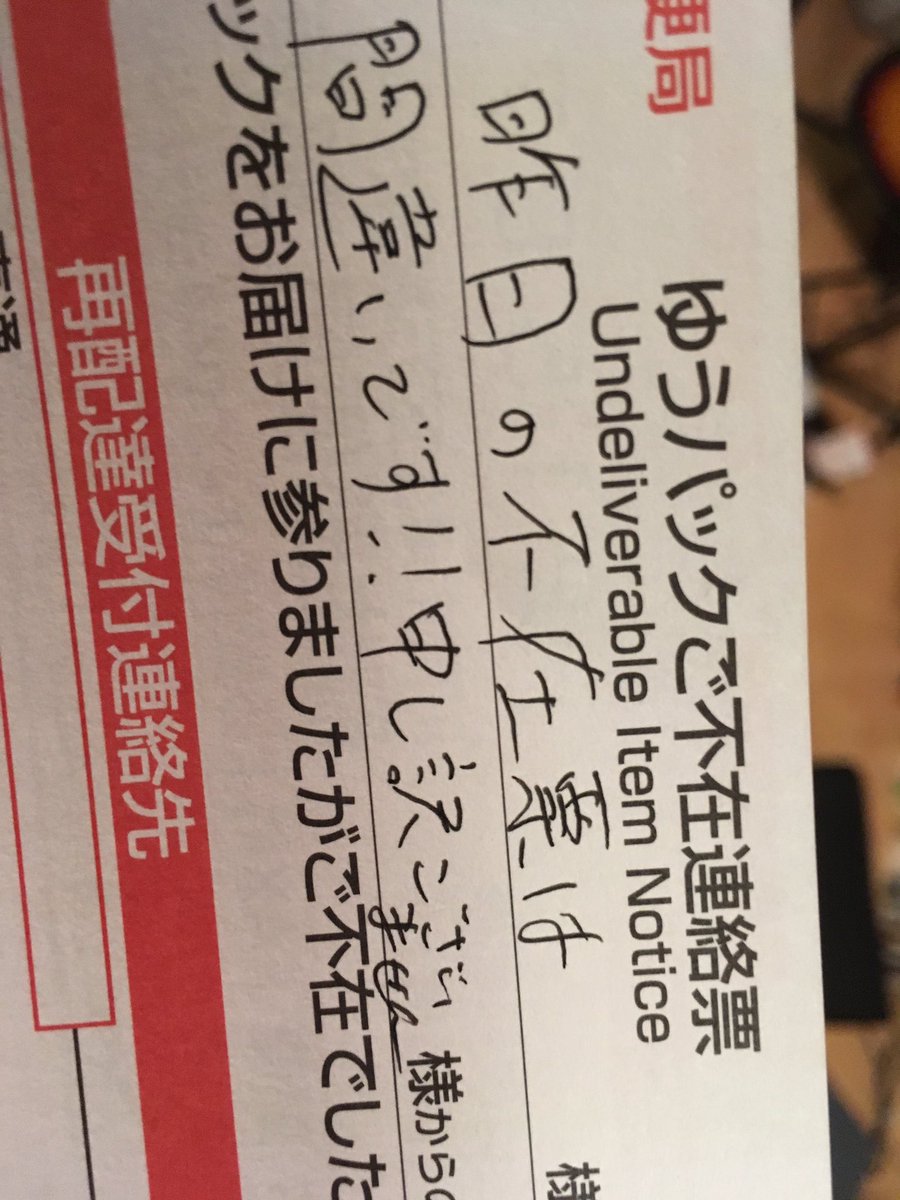 便局
ゆうパックご不在連絡票
Undeliverable Item Notice
昨日の不在票は 様
間違いです!!申し訳ございません 様からの
ックをお届けに参りましたがご不在でした
再配達受付連絡先